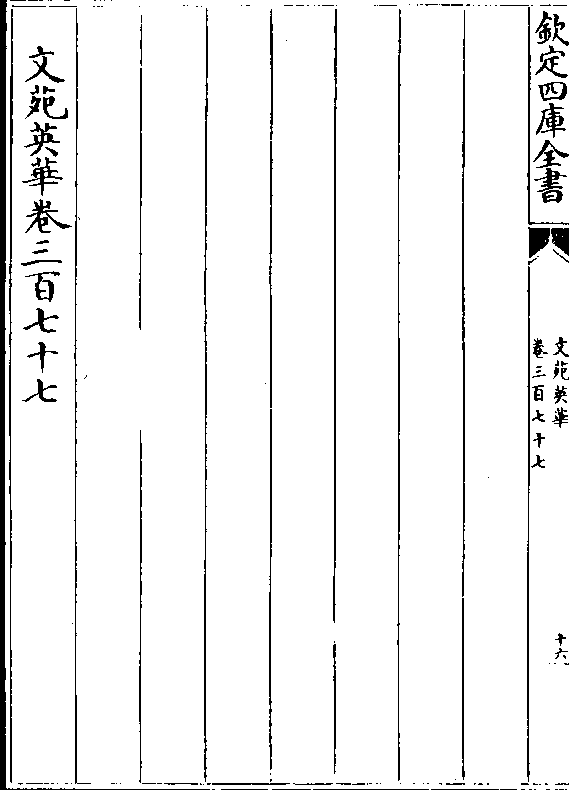 欽定四庫全書
文苑英華
卷三百七十七
十六
文苑英華卷三百七十七